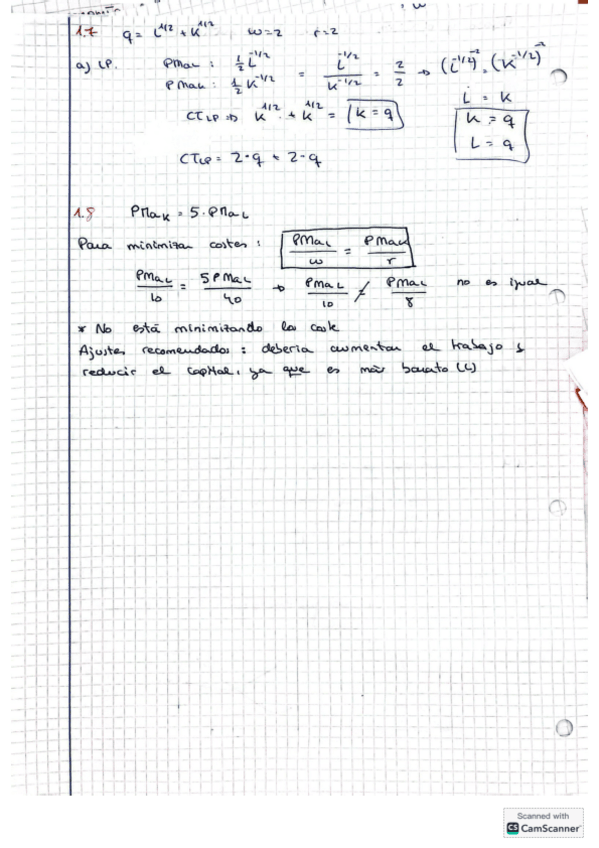 1.7 q = L^1/2 + K^1/2 w=2 r=2
a) LP. PMaL : 1/2 L^-1/2
PMaK : 1/2 K^-1/2 = L^-1/2 / K^-1/2 = 2/2 → (L^-1/2)^-2 = (K^-1/2)^-2
L = K
CT LP ⇒ K^1/2 + K^1/2 = K = q
K = q
L = q
CT LP = 2·q + 2·q
1.8 PMaK = 5·PMaL
Para minimizar costes : PMaL/w = PMaK/r
PMaL/10 = 5PMaL/40 → PMaL/10 ≠ PMaL/8 no es igual
* No está minimizando los coste
Ajustes recomendados : debería aumentar el trabajo y
reducir el capital, ya que es más barato (L)
Scanned with
CS CamScanner